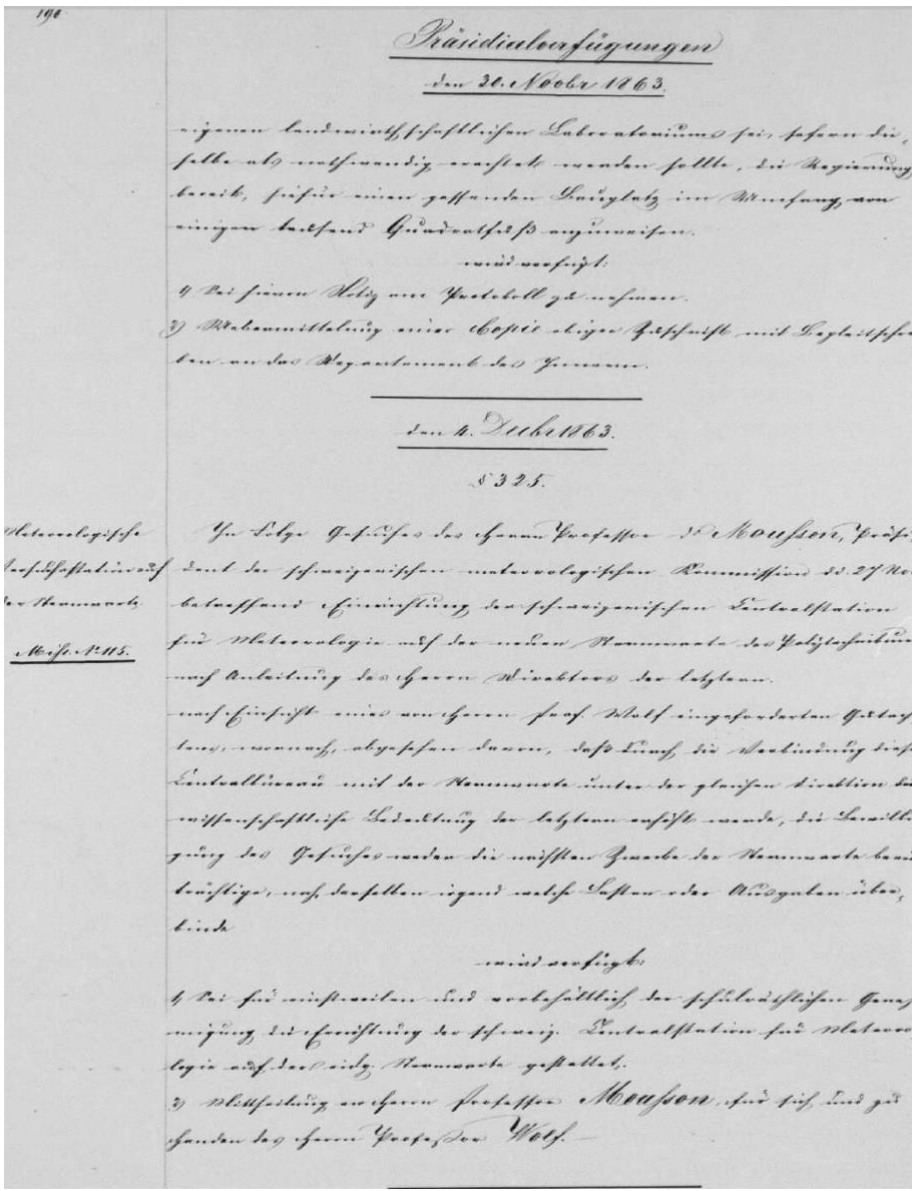 190
Präsidialverfügungen
den 30. Novbr 1863.
eigenen landwirthschaftlichen Laboratoriums sei, sofern die-
selbe als nothwendig erachtet werden sollte, die Regierung
bereit, hiefür einen passenden Bauplatz im Umfang von
einigen tausend Quadratfuß anzuweisen.
wird verfügt:
1) Sei hievon Notiz am Protokoll zu nehmen.
2) Uebermittelung einer Copie obiger Zuschrift mit Begleitschrei
ben an das Departement des Innern.
den 4. Decbr 1863.
§ 325.
Meteorologische
auf
der Sternwarte.
Miss. No 115.
In Folge Gesuches des Herrn Professor Dr Mousson, Präsi
dent der schweizerischen meteorologischen Kommission dd. 27 Nov
betreffend Einrichtung der schweizerischen Centralstation
für Meteorologie auf der neuen Sternwarte des Polytechnikum
nach Anleitung des Herrn Direktors der letztern.
nach Einsicht eines von Herrn Prof. Wolf eingeforderten Gutach
tens, wonach, abgesehen davon, daß durch die Verbindung diese
Centralbüreau mit der Sternwarte unter der gleichen Direktion die
wissenschaftliche Bedeutung der letztern erhöht werde, die Bewilli
gung des Gesuches weder die nächsten Zwecke der Sternwarte beein
trächtige, noch derselben irgend welche Lasten oder Ausgaben über-
binde
wird verfügt:
1) Sei für einstweilen und vorbehältlich der schulräthlichen Geneh
migung die Errichtung der schweiz. Centralstation für Meteoro
logie auf der eidg. Sternwarte gestattet.
2) Mittheilung an Herrn Professor Mousson, für sich und zu
Handen des Herrn Professor Wolf.